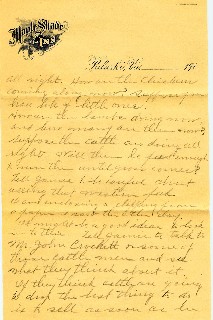 Maple Shade
INN
Pulaski, Va. 191
all right. How are the chickens
coming along now? Suppose you
have lots of little ones?
How are the lambs doing now,
and how many are there now?
Suppose the cattle are doing all
right. Will there be feed enough
to run them until grass comes?
Tell
selling that
I am enclosing a clipping from
a paper I read the other day.
It might be a good idea to look
in this. Tell to talk to
Mr. John Crockett or some of
those cattle men and see
what they think about it.
If they think cattle are going
to drop the best thing to do
is to sell as soon as he